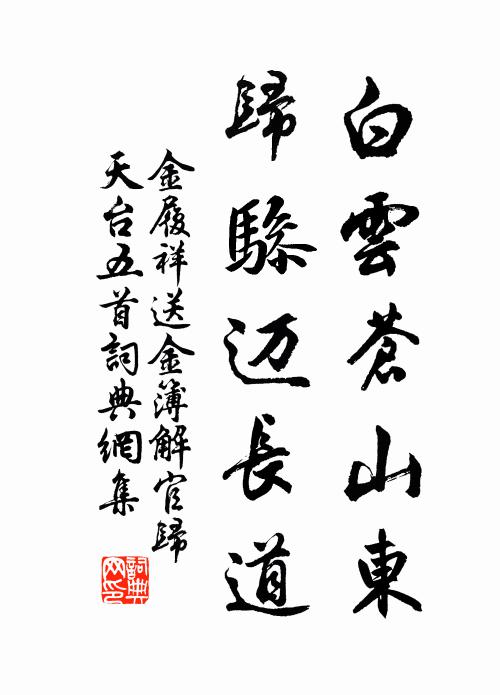 白雲蒼山東
歸驂迈長道
金履祥送金簿解官歸
天台五首詞典網集
詞典网印